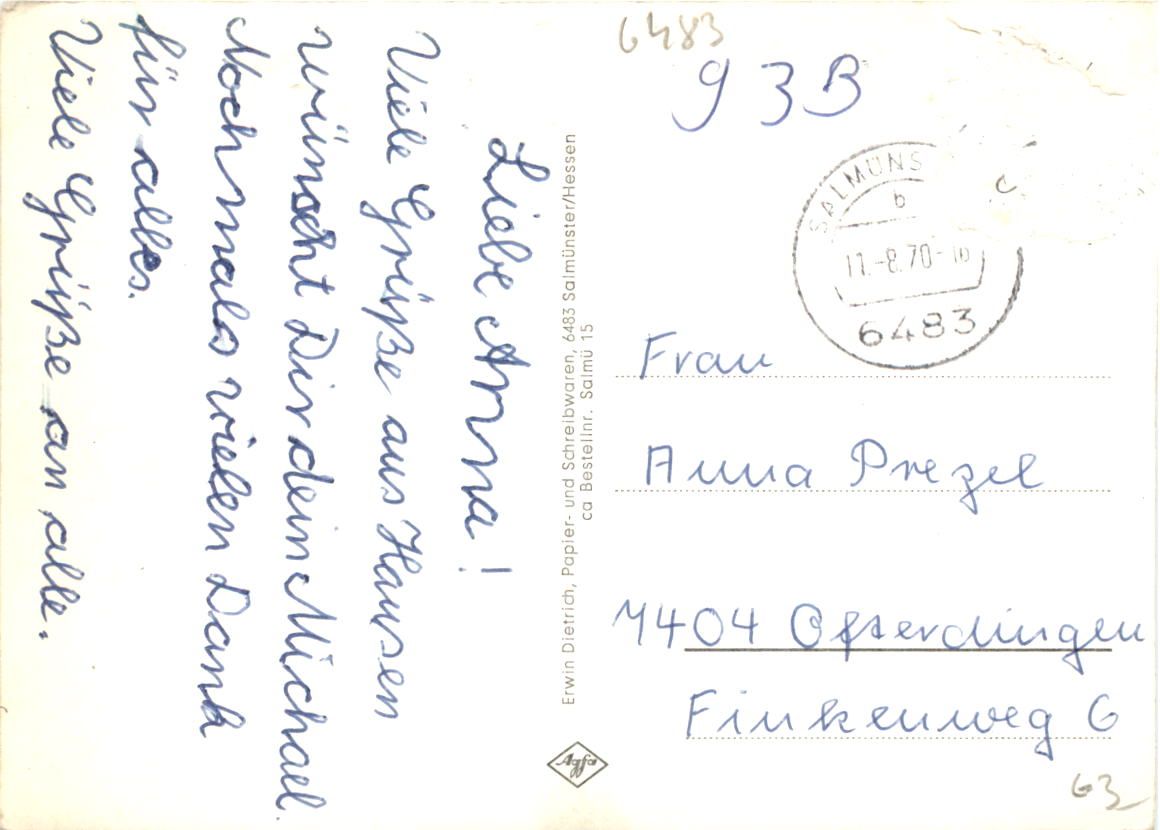 Liebe Anna!
Viele Grüße aus Hausen
wünscht Dir dein Michael.
Nochmals vielen Dank
für alles.
Viele Grüße an alle.
Erwin Dietrich, Papier- und Schreibwaren, 6483 Salmünster/Hessen
ca Bestellnr. Salmü 15
Agfa
6483
93B
SALMÜNS
b
11.-8.70-
6483
Frau
Anna Prezel
7404 Ofterdingen
Finkenweg 6
63